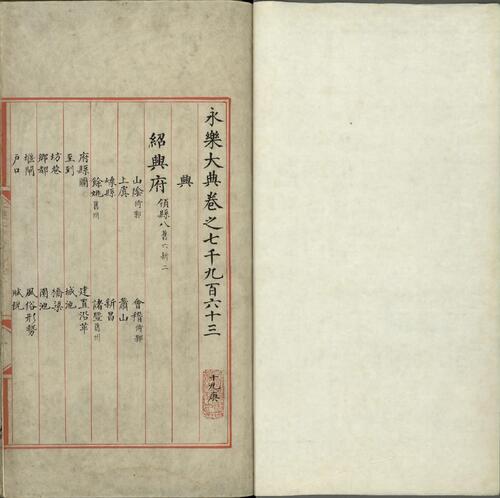 永樂大典卷之七千九百六十三
十九庚
興
紹興府 領縣八 舊六新二
山陰 倚郭 會稽 倚郭
上虞 蕭山
嵊縣 新昌
餘姚 舊州 諸暨 舊州
府縣圖 建置沿革
至到 城池
坊巷 橋梁
鄉都 園池
堰閘 風俗形勢
戶口 賦稅